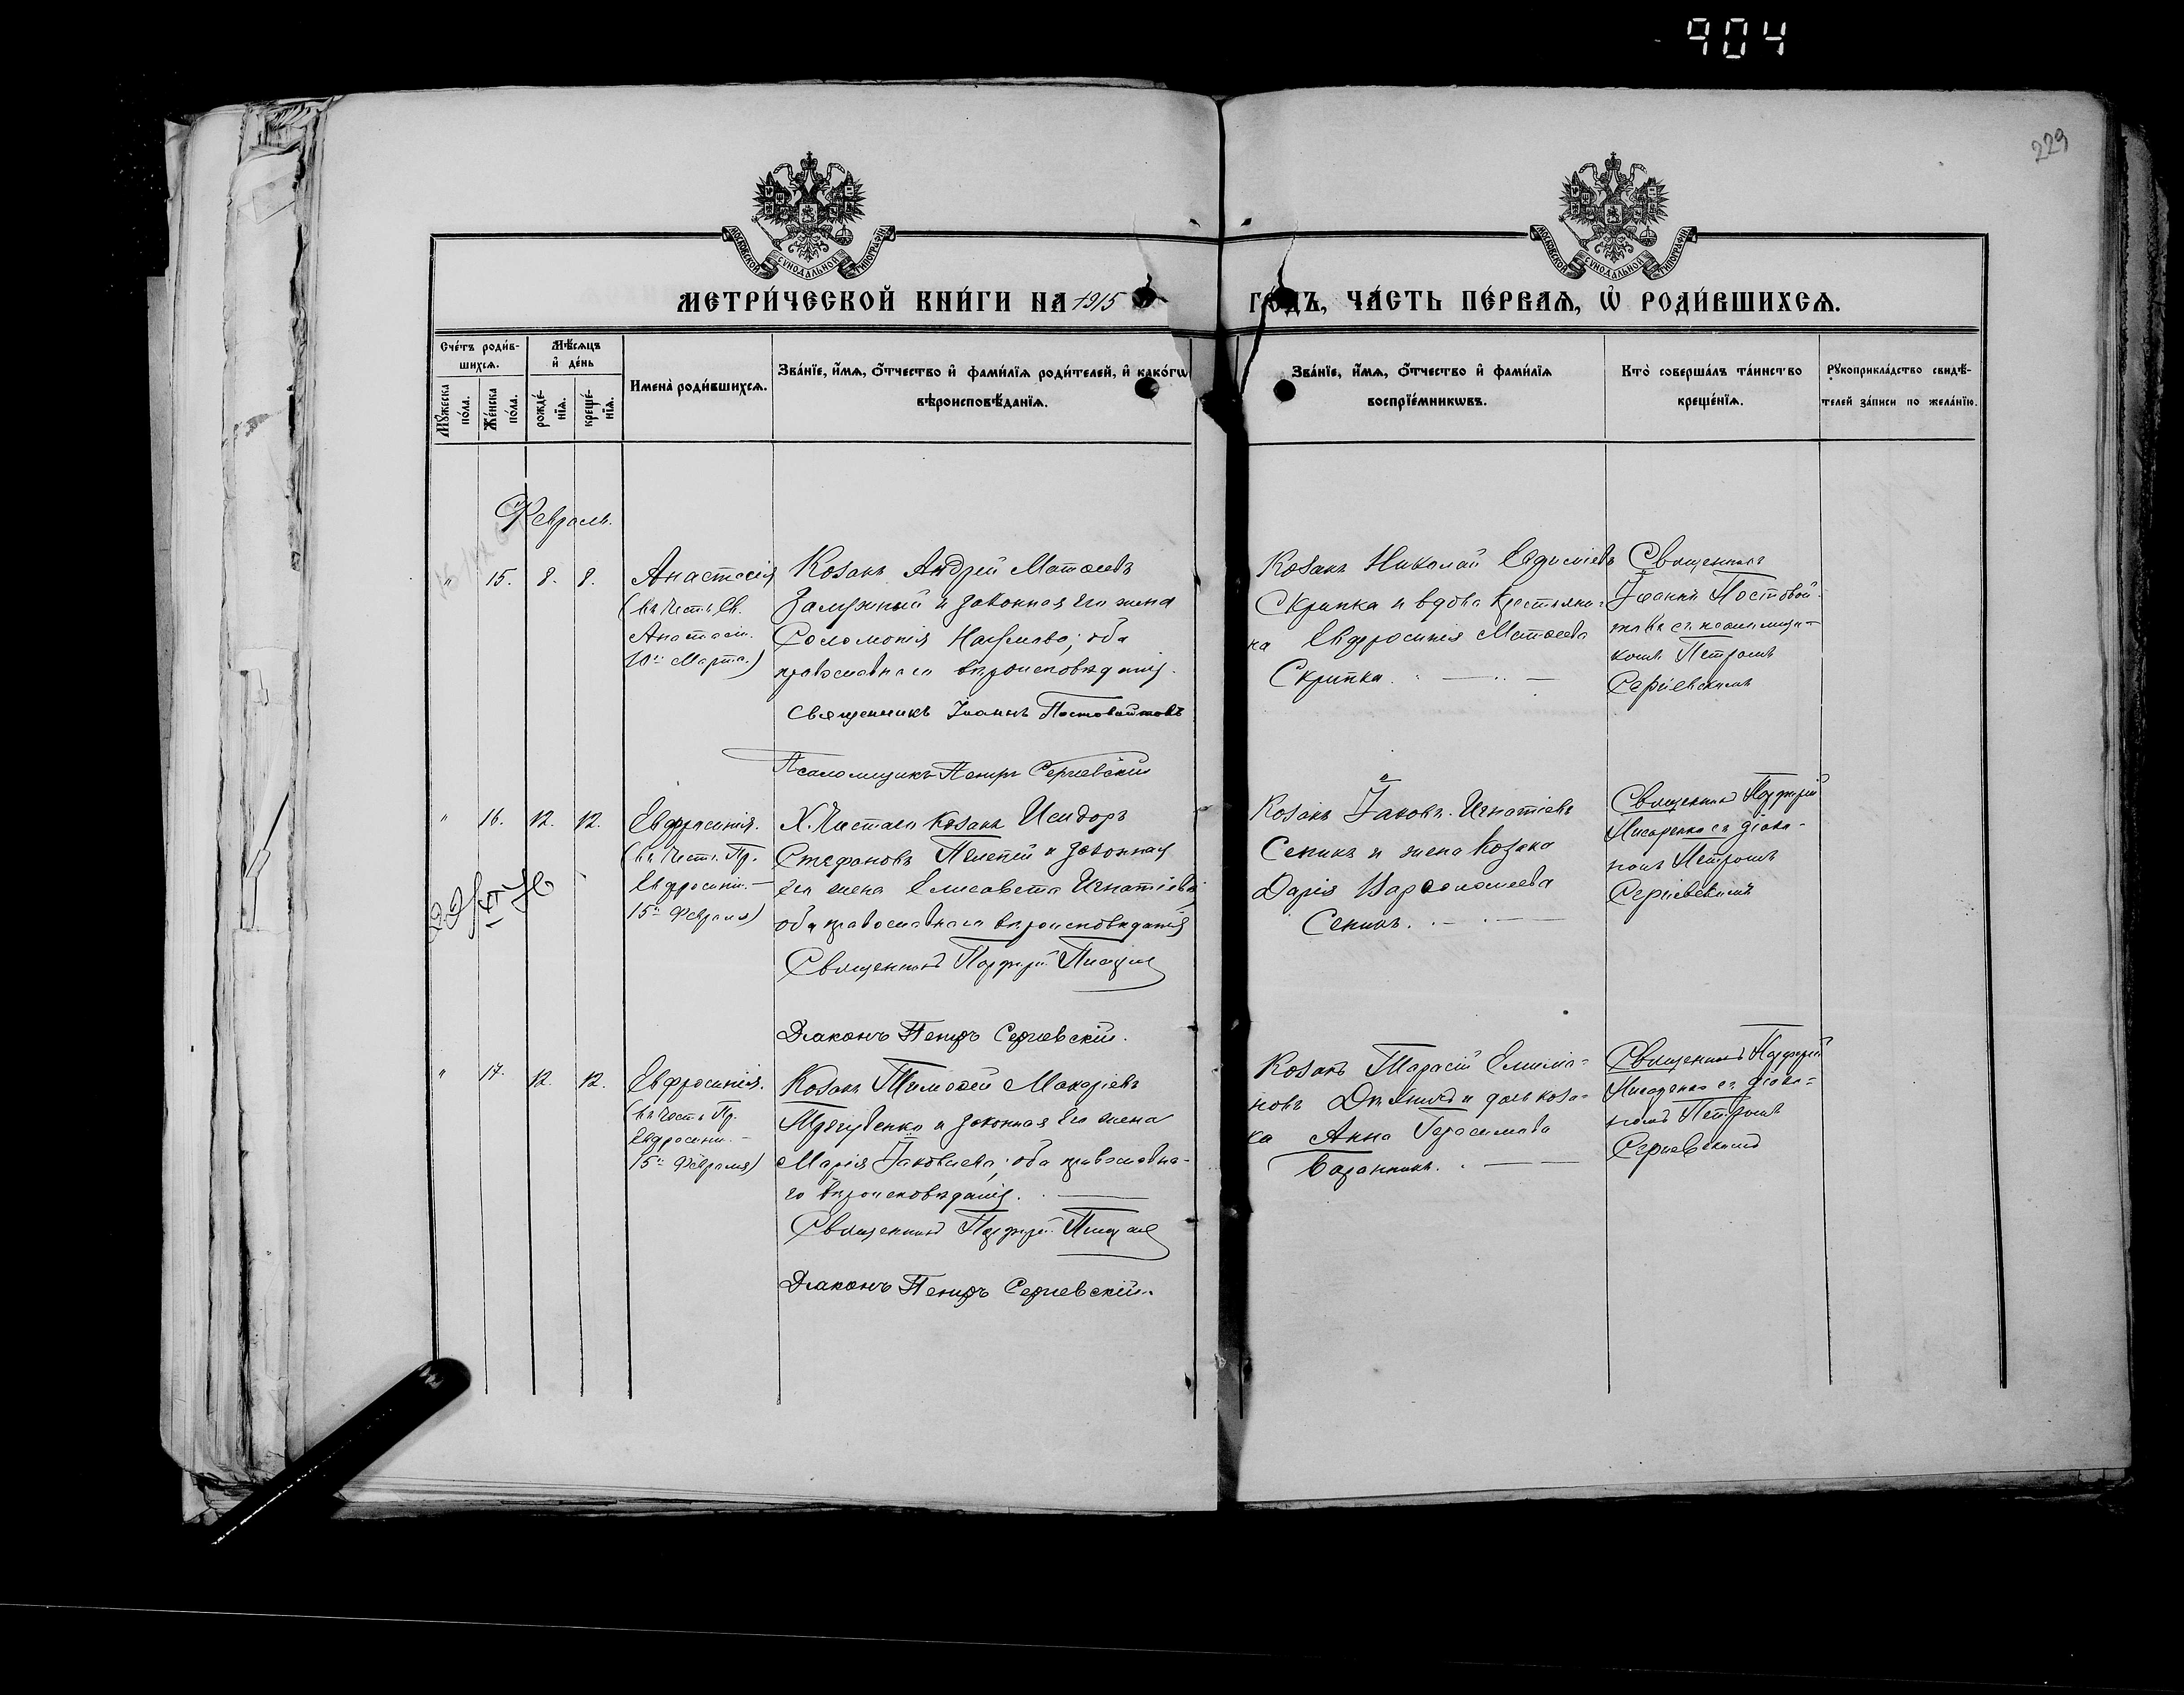 904
229
МОСКОВСКОЙ СУНОДАЛЬНОЙ ТИПОГРАФІИ
МОСКОВСКОЙ СУНОДАЛЬНОЙ ТИПОГРАФІИ
МЕТРИ́ЧЕСКОЙ КНИ́ГИ НА 1915 ГО́ДЪ, ЧА́СТЬ ПЕ́РВАѦ, Ѡ҆ РОДИ́ВШИХСѦ.
Сче́тъ роди́в-
шихсѧ.
Мꙋжеска по́ла.
Же́нска по́ла.
Мѣ́сѧцъ
и҆ де́нь
рожде́-
нїѧ.
креще́-
нїѧ.
Имена̀ роди́вшихсѧ.
Зва́нїе, и҆́мѧ, ѻ҆́тчество и҆ фами́лїѧ роди́телей, и҆ како́гѡ
вѣроисповѣ́данїѧ.
Зва́нїе, и҆́мѧ, ѻ҆́тчество и҆ фами́лїѧ
воспрїе́мникѡвъ.
Кто̀ соверша́лъ та́инство
креще́нїѧ.
Рꙋкоприкла́дство свидѣ́-
телей за́писи по жела́нїю.
Февраль.
" 15. 8. 8.
Анастасія
(въ честь Св.
Анастасіи
10го Марта.)
Козакъ Андрей Матѳеевъ
и законная его жена
Соломонія Наумова; оба
православнаго вѣроисповѣданія.
Священникъ Іоаннъ Постовойтовъ
Псаломщикъ Петръ Сергіевскій
Козакъ Николай Евфиміевъ
Скрипка и вдова крестьяни-
на Евфросинія Матѳеева
Скрипка.
Священникъ
Іоаннъ Постовой-
товъ съ псаломщи-
комъ Петромъ
Сергіевскимъ
" 16. 12. 12.
Евфросинія.
(въ честь Пр.
Евфросиніи
15го Февраля)
Х. Чистаго козакъ Исидоръ
Стефановъ Пелепей и законная
его жена Елисавета Игнатіева;
оба православнаго вѣроисповѣданія
Священникъ Порфирій
Діаконъ Петръ Сергіевскій.
Козакъ Іаковъ Игнатіевъ
Сеникъ и жена козака
Дарія Варѳоломеева
Сеникъ.
Священникъ Порфирій
Писаренко съ діако-
номъ Петромъ
Сергіевскимъ
" 17. 12. 12.
Евфросинія.
(въ честь Пр.
Евфросиніи
15го Февраля)
Козакъ Тимоѳей Макаріевъ
и законная его жена
Марія Іаковлева; оба православна-
го вѣроисповѣданія.
Священникъ Порфирій
Діаконъ Петръ Сергіевскій.
Козакъ Тарасій Елима-
новъ и дочь коза-
ка Анна Герасимова
Баранникъ.
Священникъ Порфирій
Писаренко съ діако-
номъ Петромъ
Сергіевскимъ